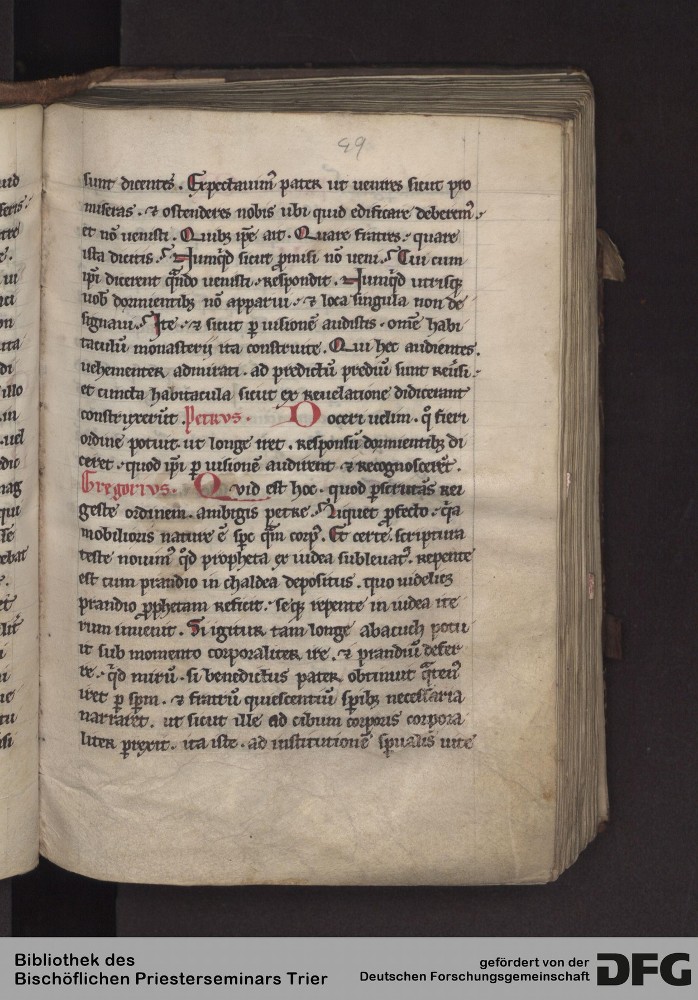 49
sunt dicentes. Expectauimꝰ pater ut uenires sicut pro
miseras. ⁊ ostenderes nobis ubi quid edificare deberemꝰ.
et nō uenisti. Quibꝫ ip̄e ait. Quare fratres. quare
ista dicitis. Nunqͥd sicut ꝓmisi nō ueni. Cui cum
ip̄i dicerent qn̄do uenisti. respondit. Nunqͥd utrisqꝫ
uob̄ dormientibꝫ nō apparui. ⁊ loca singula non de
signaui. Ite. ⁊ sicut ꝑ uisionē audistis. om̄e habi
taculū monasterij ita construite. Qui hec audientes.
uehementer admirati. ad predictū prediū sunt reū̄si.
et cuncta habitacula sicut ex reuelatione didicerant
construxerūt. Petrus. Doceri uelim. qͦ fieri
ordine potuit. ut longe iret. responsū dormientibꝫ di
ceret. quod ip̄i ꝑ uisionē audirent ⁊ recognoscerēt.
Gregorius. Quid est hoc. quod ꝑscrutās rei
geste ordinem. ambigis petre. Liquet ꝓfecto. qͥa
mobilioris nature ē sp̄c qͣm corpꝰ. Et certe scriptura
teste nouimꝰ qͥd propheta ex iudea subleuatꝰ. repente
est cum prandio in chaldea depositus. quo uidelicꝫ
prandio ꝓphetam reficit. seqꝫ repente in iudea ite
rum inuenit. Si igitur tam longe abacuch potu
it sub momento corporaliter ire. ⁊ prandiū defer
re. qͥd mirū. si benedictus pater obtinuit qͣtenꝰ
iret ꝑ sp̄m. ⁊ fratrū quiescentiū sp̄ibꝫ necessaria
narraret. ut sicut ille ad cibum corporis corpora
liter ꝑrexit. ita iste. ad institutionē sp̄ualis uite
Bibliothek des
Bischöflichen Priesterseminars Trier
gefördert von der
Deutschen Forschungsgemeinschaft
DFG